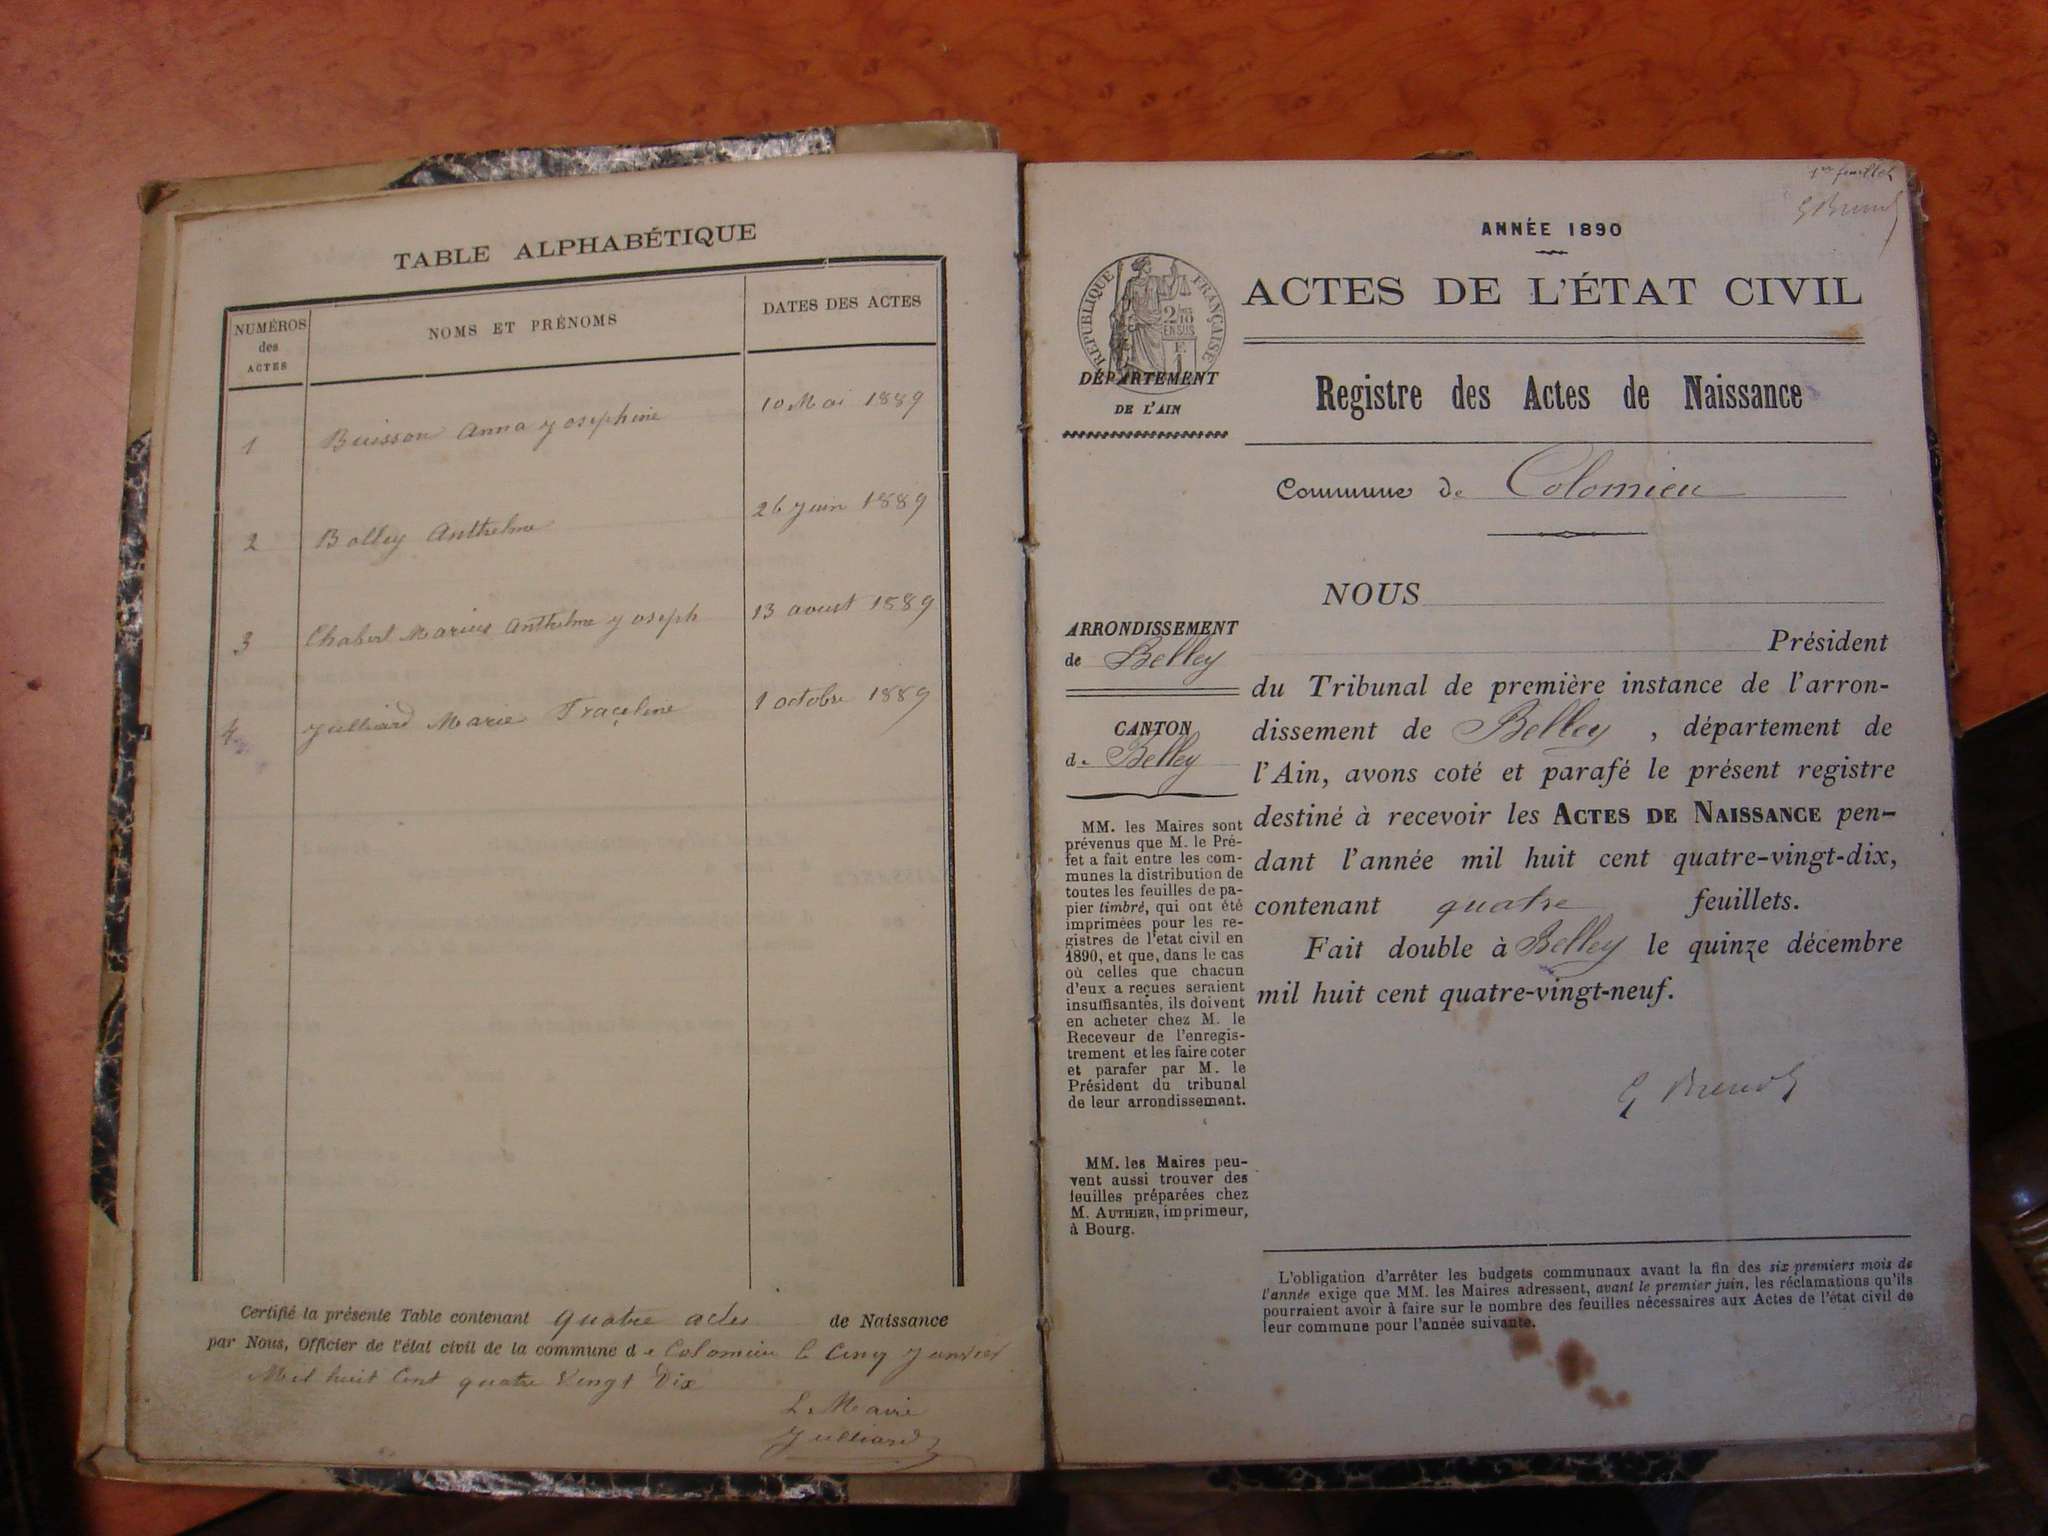 TABLE ALPHABÉTIQUE
NUMÉROS des ACTES
NOMS ET PRÉNOMS
DATES DES ACTES
1 Buisson Anna Josephine 10 Mai 1889
2 Bolley Anthelme 26 juin 1889
3 Chabert Marius Anthelme Joseph 13 aoust 1889
4 Julliard Marie 1 octobre 1889
Certifié la présente Table contenant quatre actes de Naissance
par Nous, Officier de l'état civil de la commune de Colomieu le Cinq Janvier
Mil huit Cent quatre Vingt Dix
Le Maire
Julliard
1er feuillet
ANNÉE 1890
ACTES DE L'ÉTAT CIVIL
RÉPUBLIQUE FRANÇAISE
2/10 EN SUS
DÉPARTEMENT
DE L'AIN
Registre des Actes de Naissance
Commune de Colomieu
ARRONDISSEMENT
de Belley
CANTON
de Belley
MM. les Maires sont
prévenus que M. le Pré-
fet a fait entre les com-
munes la distribution de
toutes les feuilles de pa-
pier timbré, qui ont été
imprimées pour les re-
gistres de l'etat civil en
1890, et que, dans le cas
où celles que chacun
d'eux a reçues seraient
insuffisantes, ils doivent
en acheter chez M. le
Receveur de l'enregis-
trement et les faire coter
et parafer par M. le
Président du tribunal
de leur arrondissement.
MM. les Maires peu-
vent aussi trouver des
feuilles préparées chez
M. AUTHIER, imprimeur,
à Bourg.
NOUS
Président
du Tribunal de première instance de l'arron-
dissement de Belley, département de
l'Ain, avons coté et parafé le présent registre
destiné à recevoir les ACTES DE NAISSANCE pen-
dant l'année mil huit cent quatre-vingt-dix,
contenant quatre feuillets.
Fait double à Belley le quinze décembre
mil huit cent quatre-vingt-neuf.
L'obligation d'arrêter les budgets communaux avant la fin des six premiers mois de
l'année exige que MM. les Maires adressent, avant le premier juin, les réclamations qu'ils
pourraient avoir à faire sur le nombre des feuilles nécessaires aux Actes de l'état civil de
leur commune pour l'année suivante.